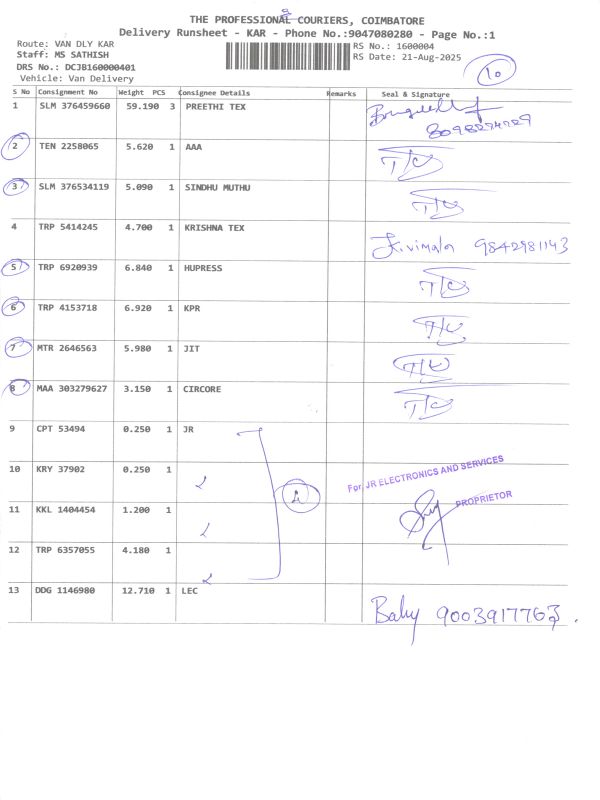 THE PROFESSIONAL COURIERS, COIMBATORE
Delivery Runsheet - KAR - Phone No.:9047080280 - Page No.:1
Route: VAN DLY KAR
Staff: MS SATHISH
DRS No.: DCJB160000401
Vehicle: Van Delivery
RS No.: 1600004
RS Date: 21-Aug-2025
10
S No Consignment No Weight PCS Consignee Details Remarks Seal & Signature
1 SLM 376459660 59.190 3 PREETHI TEX
8098274729
2 TEN 2258065 5.620 1 AAA T/C
3 SLM 376534119 5.090 1 SINDHU MUTHU T/C
4 TRP 5414245 4.700 1 KRISHNA TEX 9842981143
5 TRP 6920939 6.840 1 HUPRESS T/C
6 TRP 4153718 6.920 1 KPR T/C
7 MTR 2646563 5.980 1 JIT T/C
8 MAA 303279627 3.150 1 CIRCORE T/C
9 CPT 53494 0.250 1 JR
10 KRY 37902 0.250 1
4
For JR ELECTRONICS AND SERVICES
PROPRIETOR
11 KKL 1404454 1.200 1
12 TRP 6357055 4.180 1
13 DDG 1146980 12.710 1 LEC
Baby 9003917763